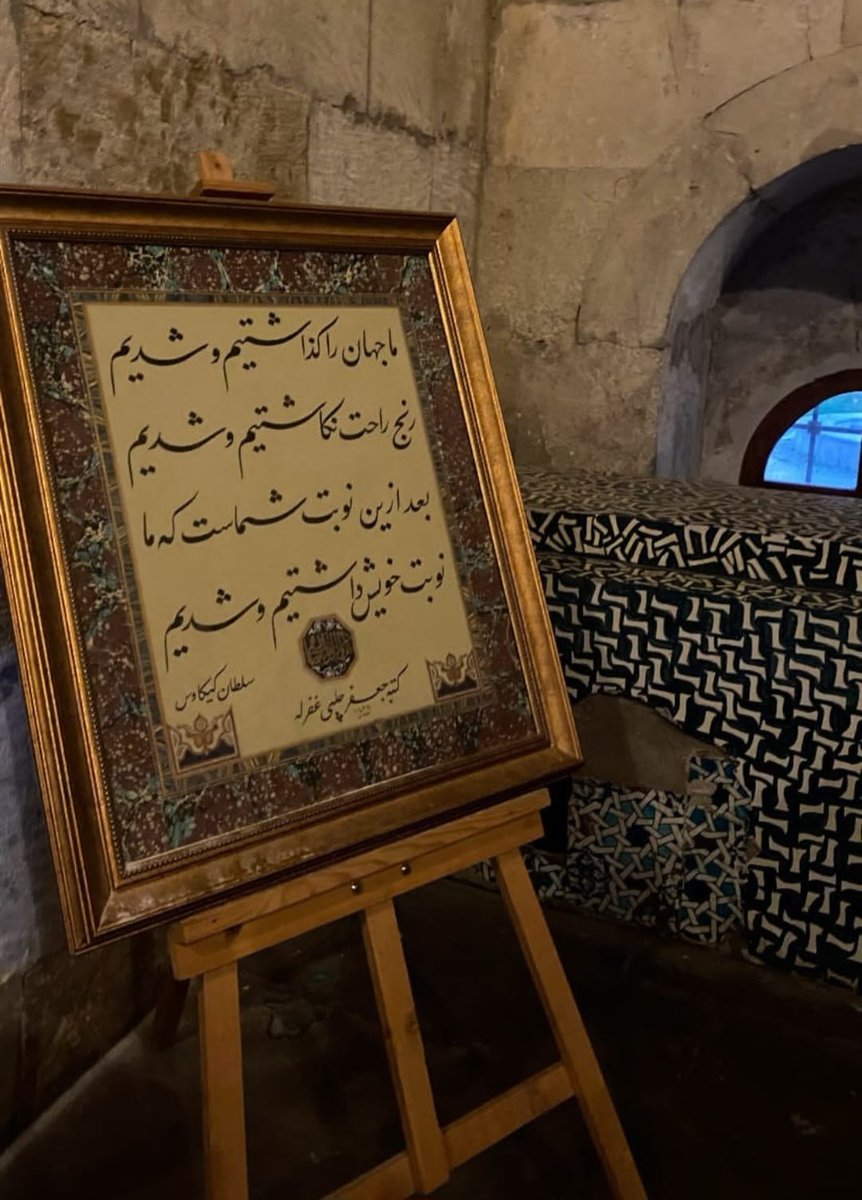 ما جهان را گذاشتیم و شدیم
رنج راحت نکاشتیم و شدیم
بعد ازین نوبت شماست که ما
نوبت خویش داشتیم و شدیم
سلطان کیکاوس
کتبه جعفر چلبی غفرله